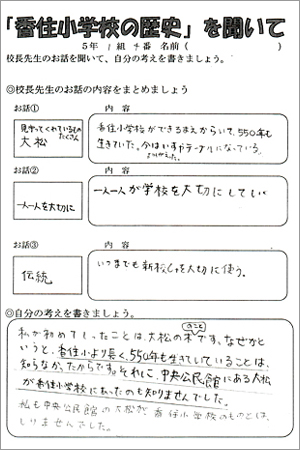 「香住小学校の歴史」を聞いて
5年 1組 番 名前(
校長先生のお話を聞いて、自分の考えを書きましょう。
◎校長先生のお話の内容をまとめましょう
お話① 内 容
見守ってくれているもの
たくさん
大松
香住小学校ができるまえからいて、550年も
生きていた。今はいすやテーブルになっている。
お話② 内 容
一人一人を大切に
一人一人が学校を大切にしてい
お話③ 内 容
伝統
いつまでも新校しゃを大切に使う。
◎自分の考えを書きましょう。
のこと
私が初めてしったことは、大松の木です。なぜかと
いうと、香住小より長く、550年も生きていることは、
知らなかったからです。それに、中央公民館にある大松
が香住小学校にあったのも知りませんでした。
私も中央公民館の大松が香住小学校のものとは、
しりませんでした。